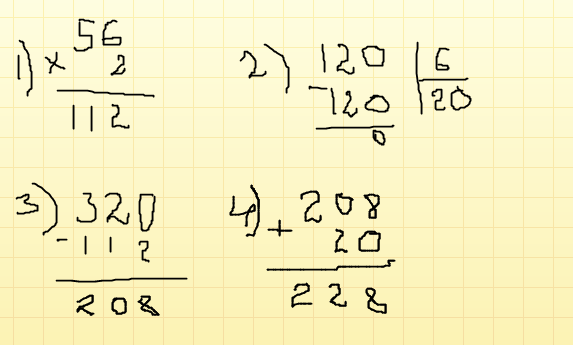 1) × 56
2
112
2) 120 | 6
- 120 | 20
0
3) 320
- 112
208
4) + 208
20
228